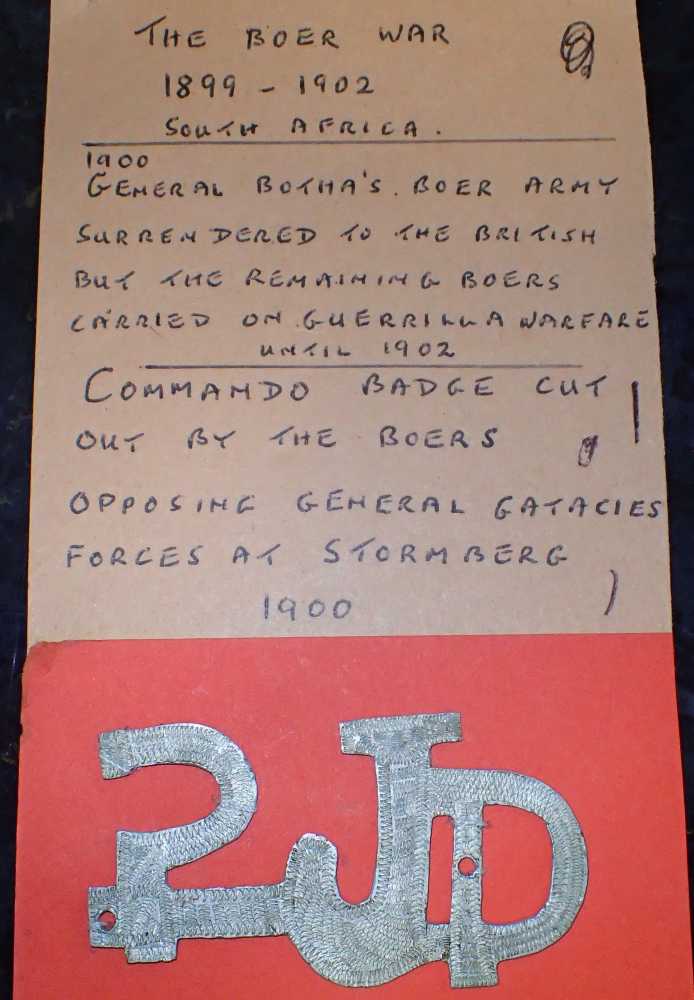 THE BOER WAR
1899 - 1902
SOUTH AFRICA.
1900
GENERAL BOTHA'S. BOER ARMY
SURRENDERED TO THE BRITISH
BUT THE REMAINING BOERS
CARRIED ON GUERRILLA WARFARE
UNTIL 1902
COMMANDO BADGE CUT
OUT BY THE BOERS
OPPOSING GENERAL GATACIES
FORCES AT STORMBERG
1900
2JD